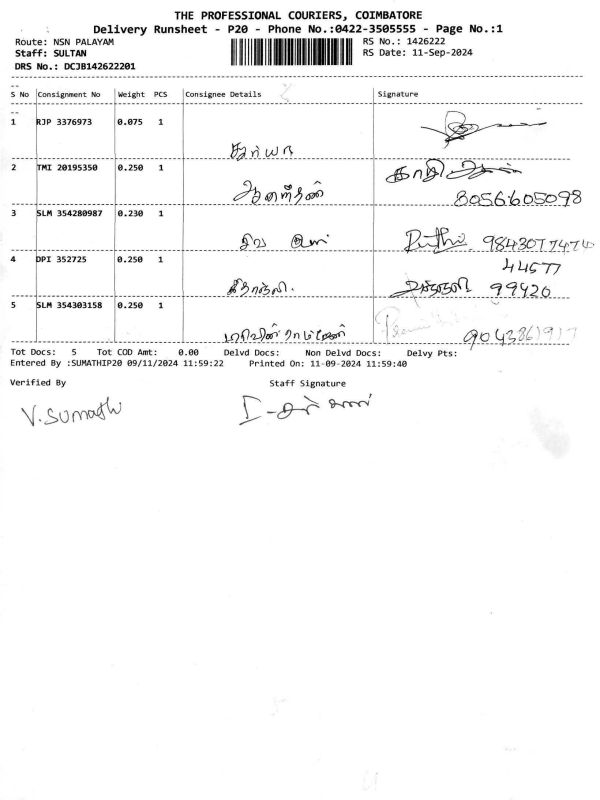 THE PROFESSIONAL COURIERS, COIMBATORE
Delivery Runsheet - P20 - Phone No.:0422-3505555 - Page No.:1
Route: NSN PALAYAM RS No.: 1426222
Staff: SULTAN RS Date: 11-Sep-2024
DRS No.: DCJB142622201
S No Consignment No Weight PCS Consignee Details Signature
1 RJP 3376973 0.075 1
2 TMI 20195350 0.250 1
8056605098
3 SLM 354280987 0.230 1
சிவ 9843077474
4 DPI 352725 0.250 1 44577
கீதாஞ்சலி. 99420
5 SLM 354303158 0.250 1
Tot Docs: 5 Tot COD Amt: 0.00 Delvd Docs: Non Delvd Docs: Delvy Pts:
Entered By :SUMATHIP20 09/11/2024 11:59:22 Printed On: 11-09-2024 11:59:40
Verified By Staff Signature
V. Sumathi